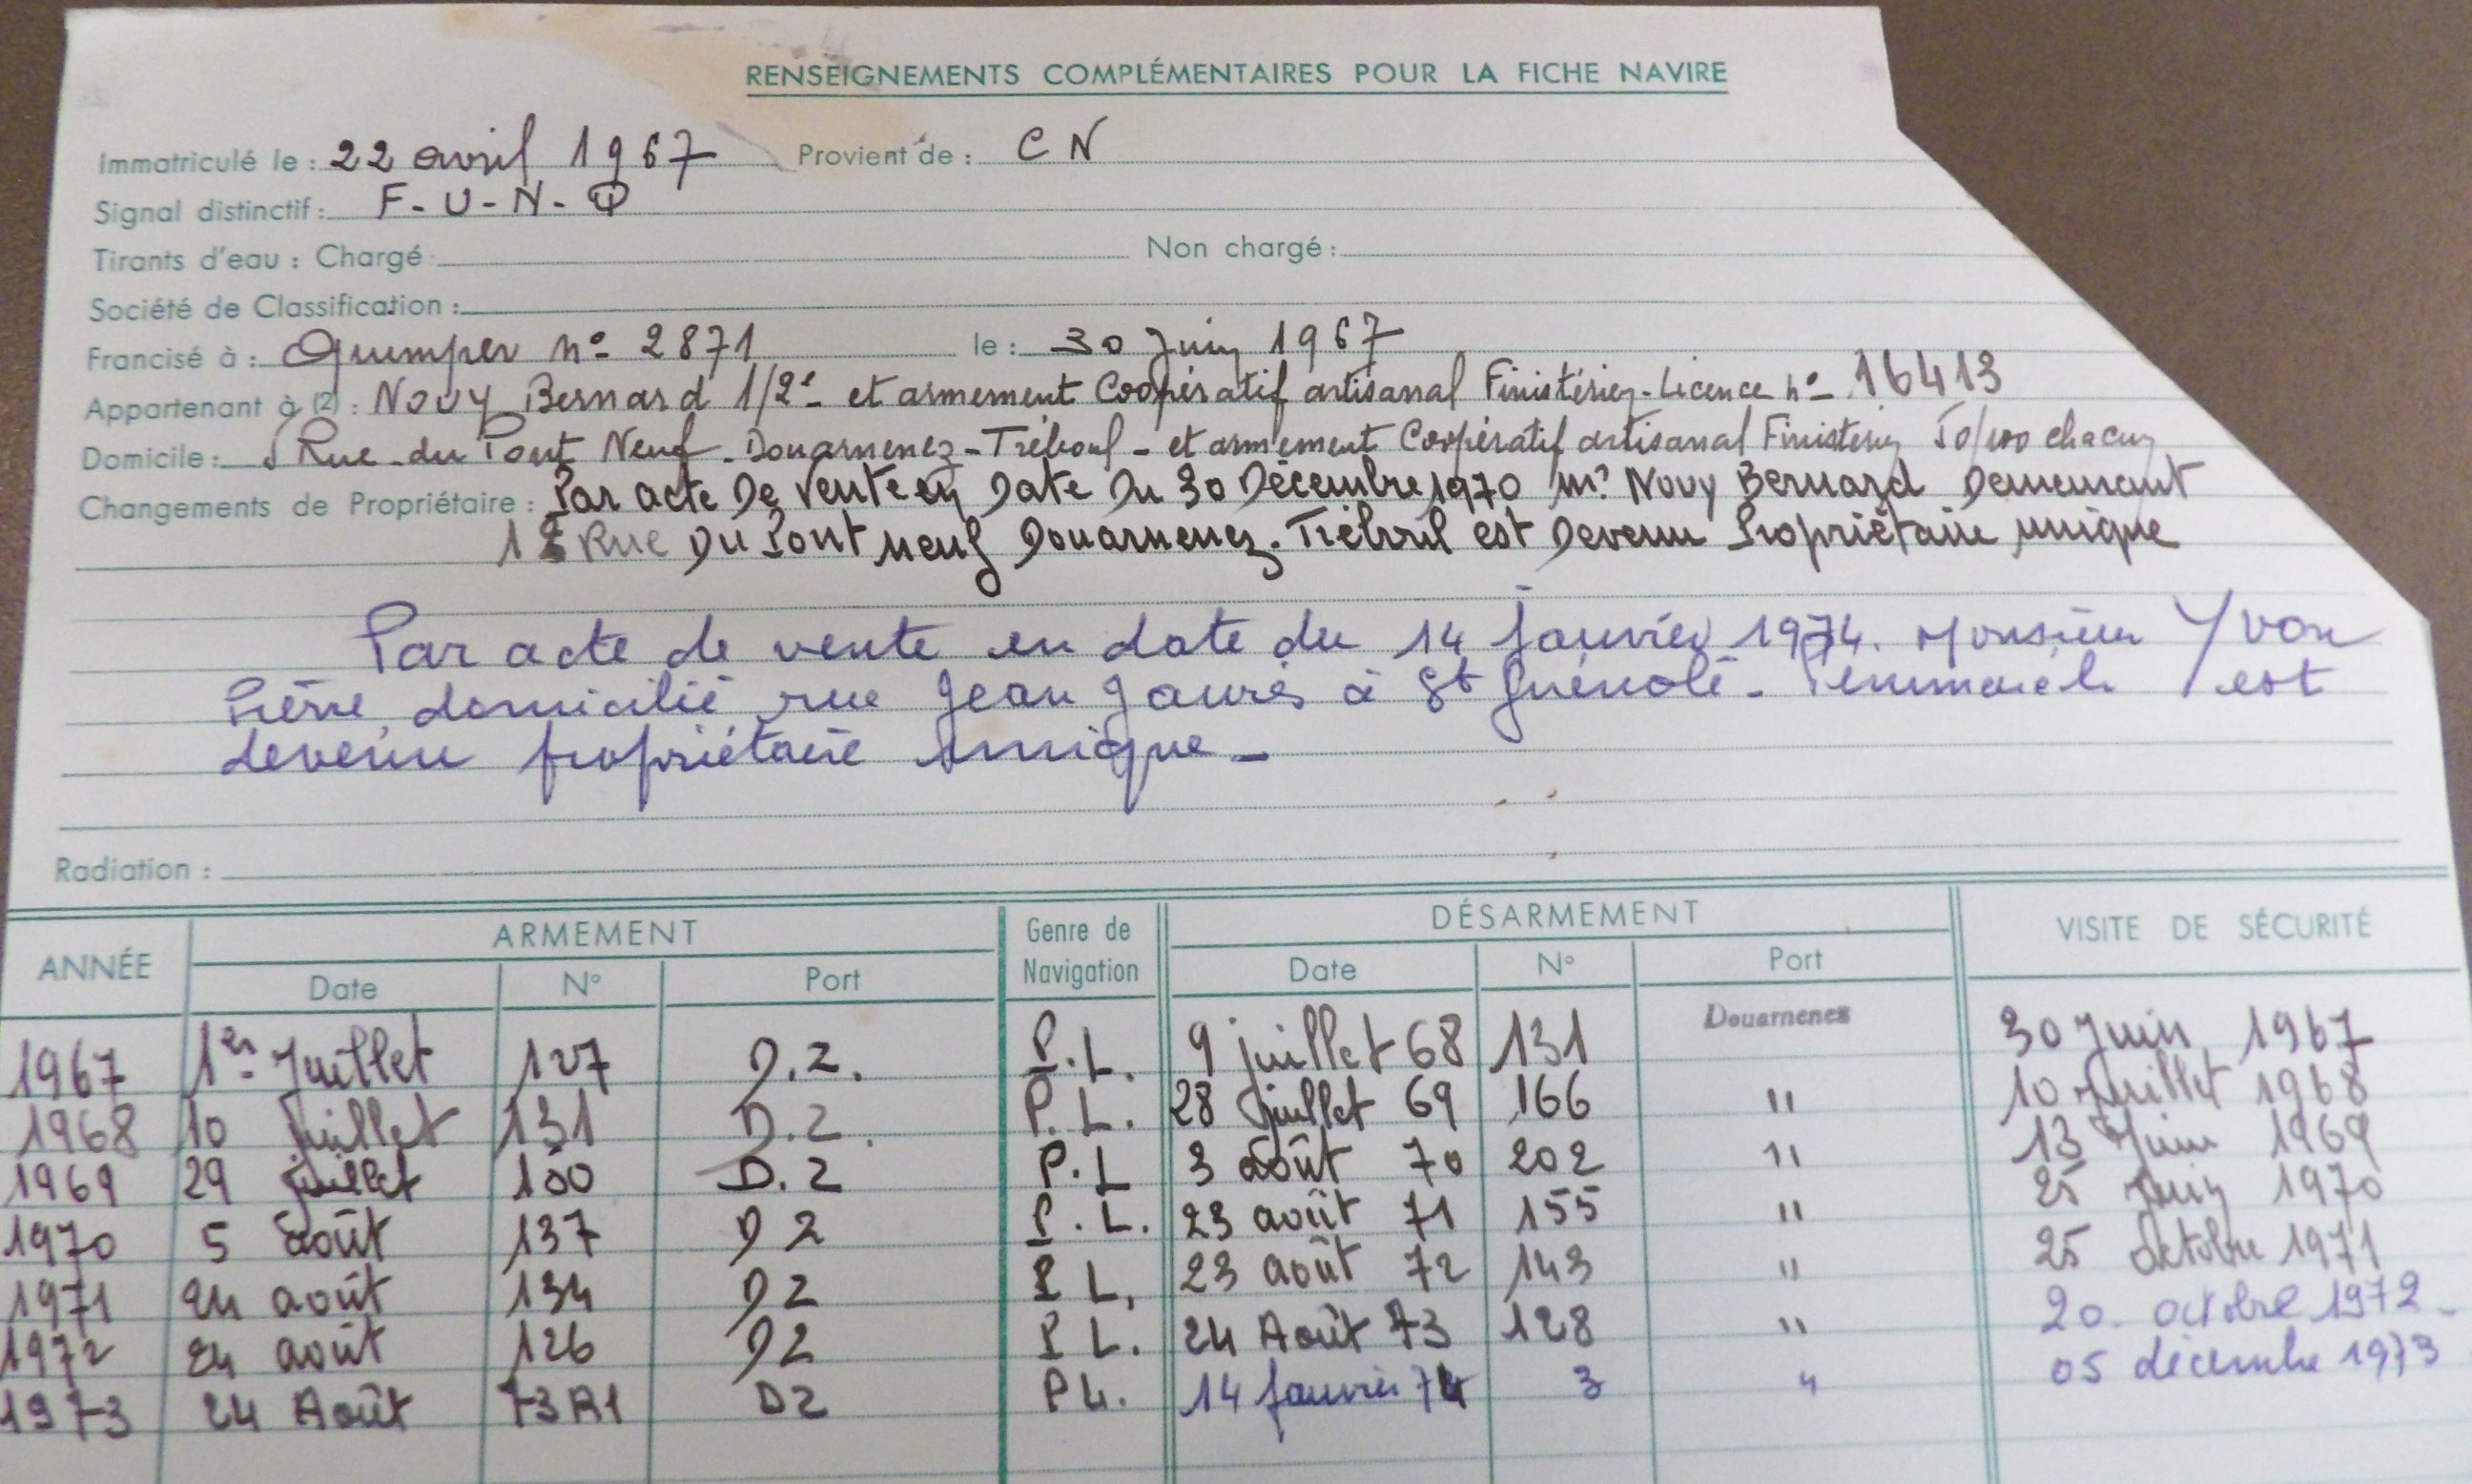 RENSEIGNEMENTS COMPLÉMENTAIRES POUR LA FICHE NAVIRE
Immatriculé le : 22 avril 1967 Provient de : C N
Signal distinctif : F-U-N-
Tirants d'eau : Chargé Non chargé :
Société de Classification :
Francisé à : Quimper nº 2871 le : 30 Juin 1967
Appartenant à (2) : NOUY Bernard 1/2e et armement Coopératif artisanal Finistérien - Licence nº 16413
Domicile : Rue du Pont Neuf - Douarnenez - Tréboul - et armement Coopératif artisanal Finisterien 50/100 chacun
Changements de Propriétaire : Par acte De Vente en Date Du 30 Décembre 1970 Mr Nouy Bernard Demeurant
Rue Du Pont neuf Douarnenez. Tréboul est Devenu Propriétaire unique
Par acte de vente en date du 14 Janvier 1974. Monsieur Yvon
Pierre domicilié rue Jean Jaurès à St Guénolé - Penmarch est
devenu propriétaire unique -
Radiation :
ANNÉE ARMEMENT Genre de Navigation DÉSARMEMENT VISITE DE SÉCURITÉ
Date N° Port Date N° Port
1967 1er Juillet 127 D.Z. P.L. 9 juillet 68 131 Douarnenez 30 Juin 1967
1968 10 Juillet 131 D.Z. P.L. 28 Juillet 69 166 " 10 Juillet 1968
1969 29 Juillet 150 D.Z P.L 3 Août 70 202 " 13 Juin 1969
1970 5 Août 137 DZ P.L. 23 août 71 155 " 25 Juin 1970
1971 24 août 134 DZ P L, 23 août 72 143 " 25 Octobre 1971
1972 24 août 126 DZ P L. 24 Août 73 128 " 20. octobre 1972 -
1973 24 Août 73A1 DZ PL. 14 Janvier 74 3 " 05 décembre 1973